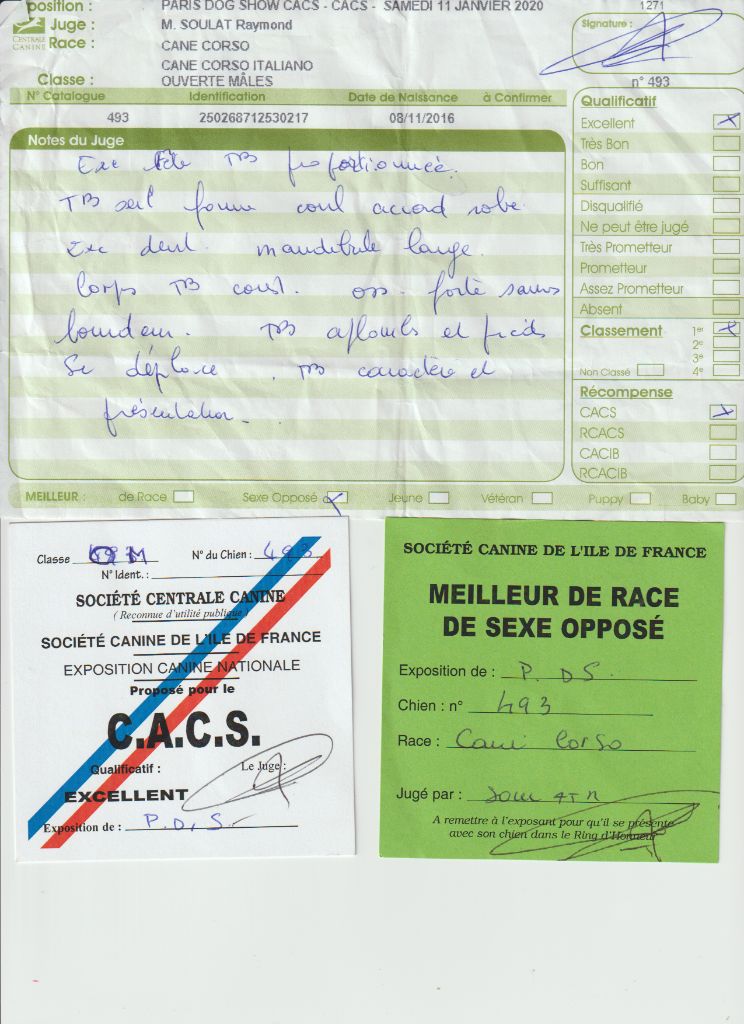 position : PARIS DOG SHOW CACS - CACS - SAMEDI 11 JANVIER 2020
1271
Juge : M. SOULAT Raymond
CENTRALE
CANINE
Race : CANE CORSO
CANE CORSO ITALIANO
Classe : OUVERTE MÂLES
Signature :
n° 493
N° Catalogue Identification Date de Naissance à Confirmer
493 250268712530217 08/11/2016
Notes du Juge
Exc tête TB proportionnée.
TB œil forme coul accord robe
Exc dent. mandibule large
Corps TB const. oss. forte sans
lourdeur. TB aplombs et pieds
Se déplace . TB caractère et
présentation.
Qualificatif
Excellent
Très Bon
Bon
Suffisant
Disqualifié
Ne peut être jugé
Très Prometteur
Prometteur
Assez Prometteur
Absent
Classement 1er
2e
3e
Non Classé 4e
Récompense
CACS
RCACS
CACIB
RCACIB
MEILLEUR : de Race Sexe Opposé Jeune Vétéran Puppy Baby
Classe OM N° du Chien : 493
N° Ident. :
SOCIÉTÉ CENTRALE CANINE
( Reconnue d'utilité publique )
SOCIÉTÉ CANINE DE L'ILE DE FRANCE
EXPOSITION CANINE NATIONALE
Proposé pour le
C.A.C.S.
Qualificatif : Le Juge :
EXCELLENT
Exposition de : P.D.S.
SOCIÉTÉ CANINE DE L'ILE DE FRANCE
MEILLEUR DE RACE
DE SEXE OPPOSÉ
Exposition de : P. DS.
Chien : n° 493
Race : Cane Corso
Jugé par :
A remettre à l'exposant pour qu'il se présente
avec son chien dans le Ring d'Honneur